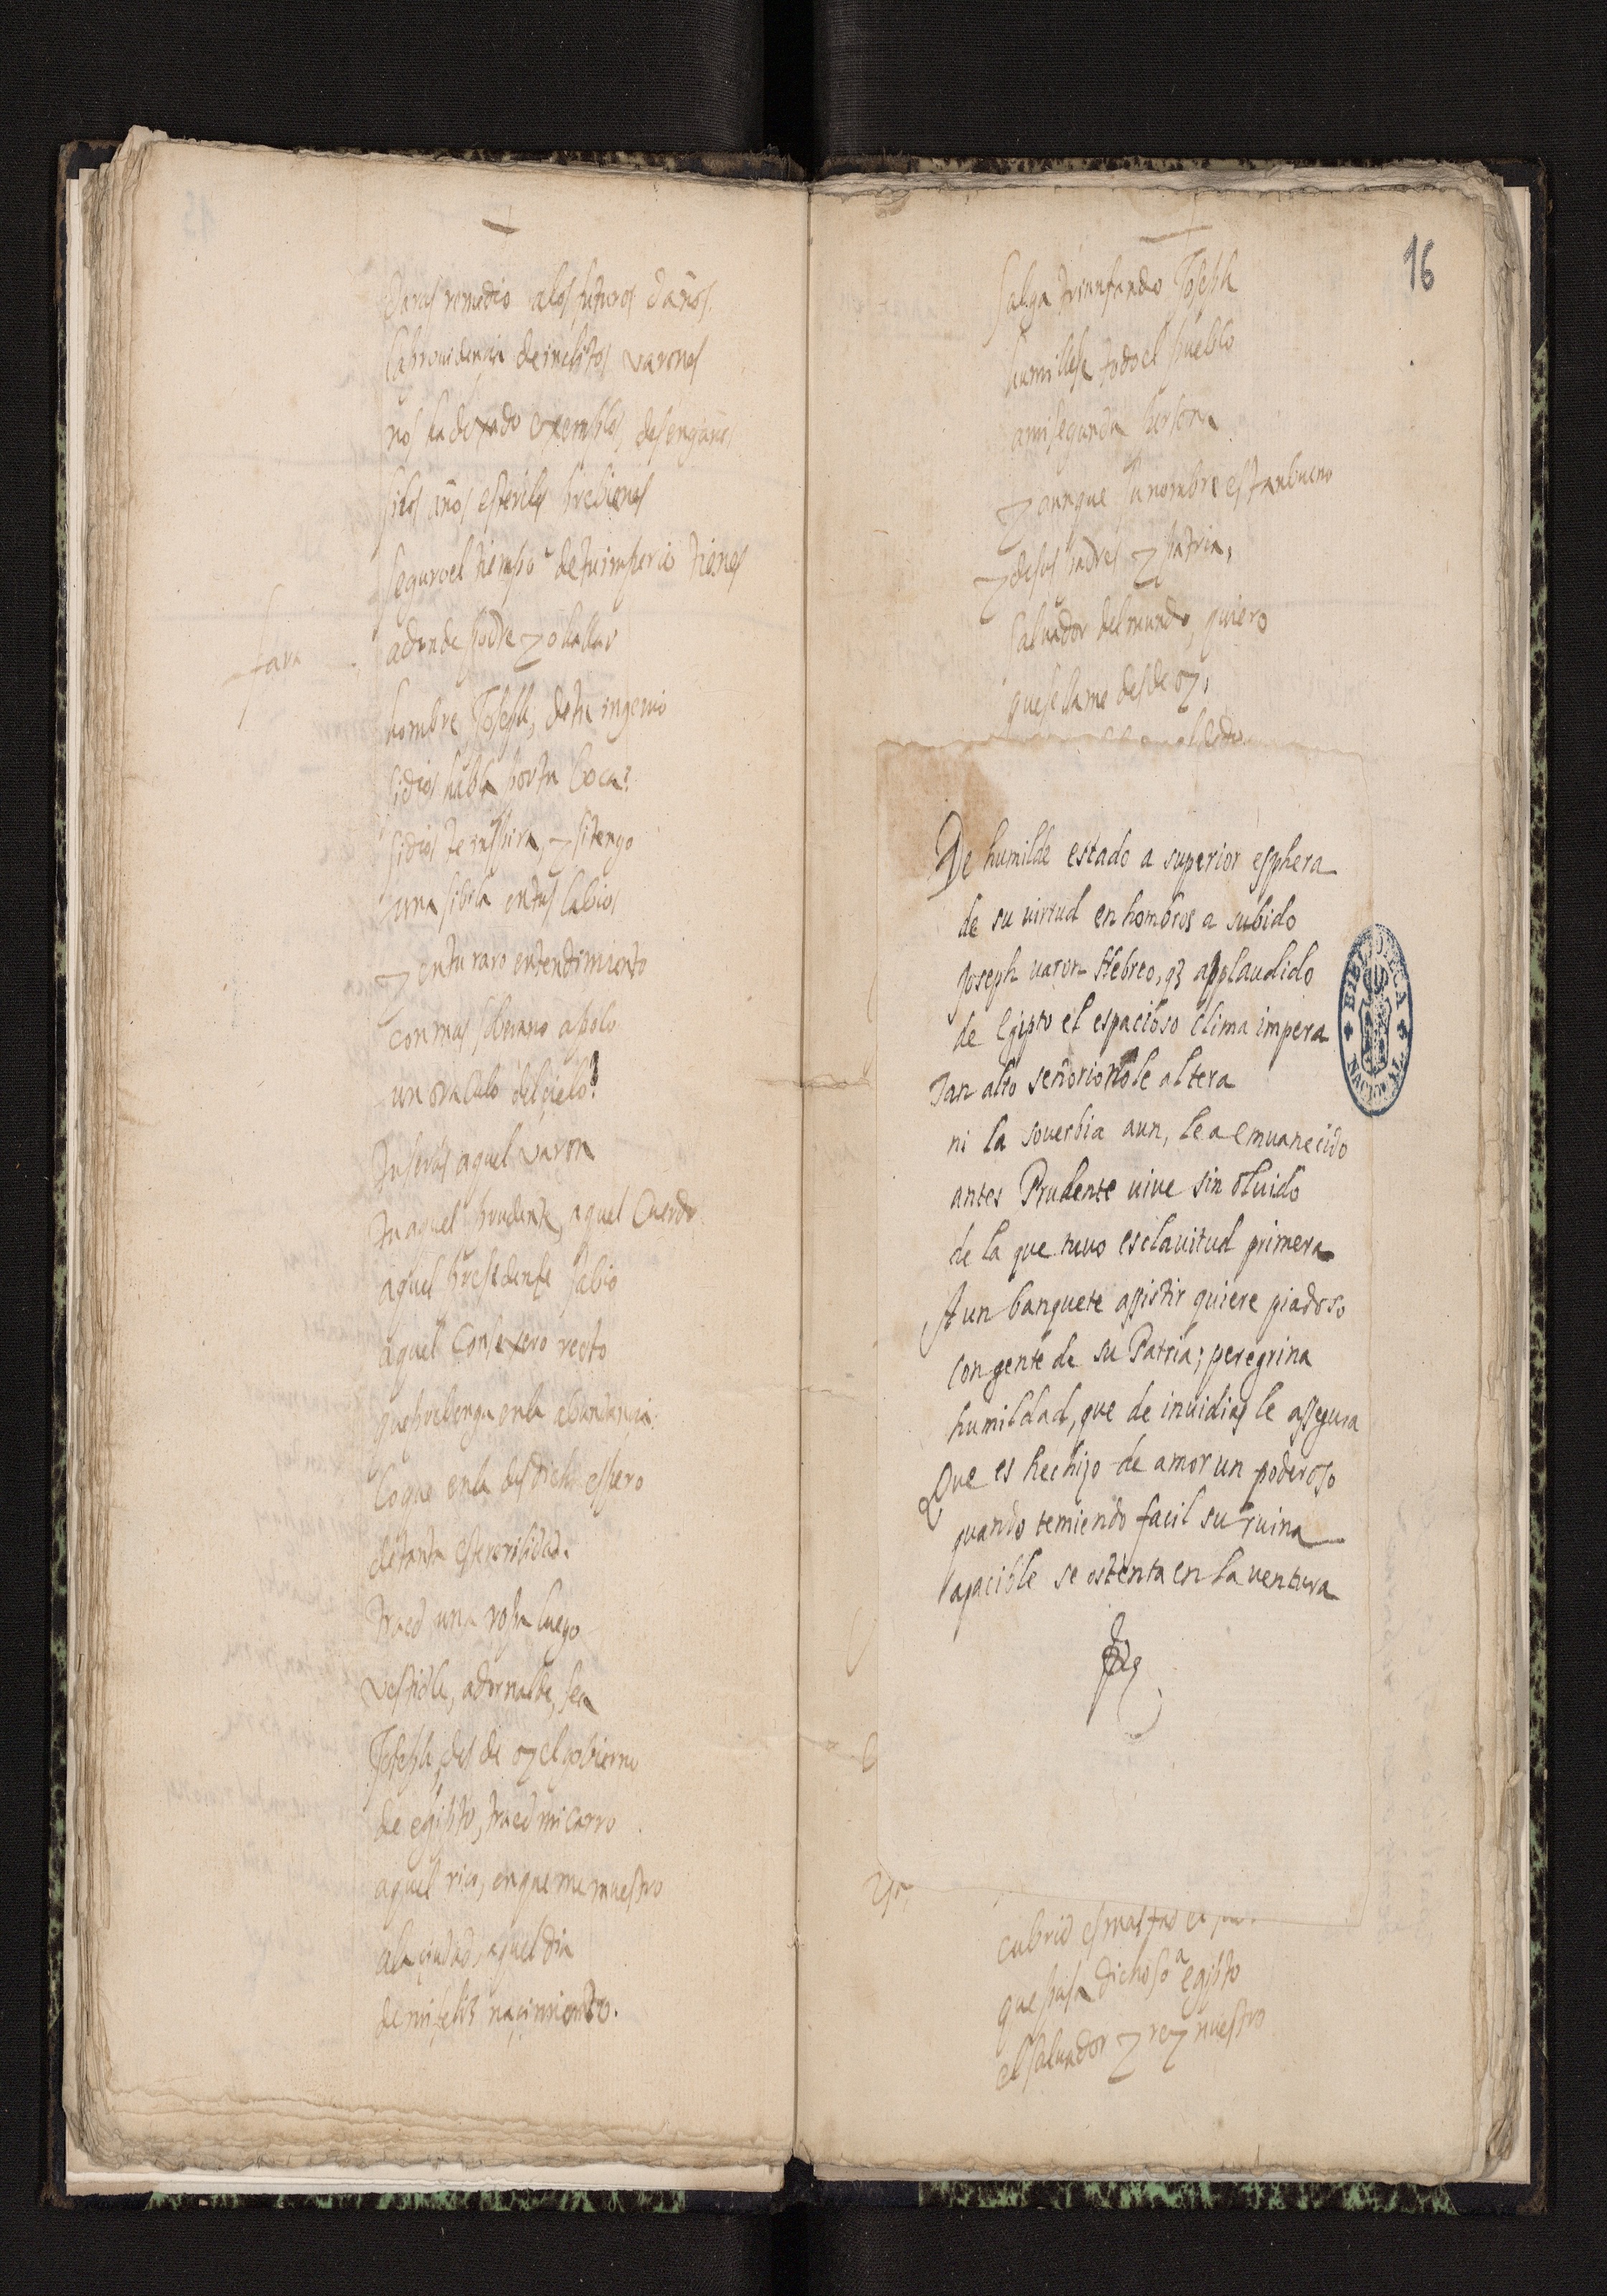 daras remedio alos futuros daños.
la providencia de inclitos varones
nos ha dexado exemplos, desengaños
si los años esteriles previenes
seguro el tiempo de tu imperio tienes
fara
adonde podre yo hallar
hombre Joseph, de tu ingenio
si dios habla por tu boca?
si dios te inspira, y si tengo
una sibila en tus labios
y en tu raro entendimiento
con mas soberano apolo
un oraculo del çielo?
tu seras aquel varon
tu aquel prudente, aquel Cuerdo
aquel presidente sabio
aquel Consexero recto
que prebenga en la abundançia
lo que en la desdicha espero
de tanta esterorilidad.
traed una ropa luego
vestidle, adornalde, sea
Joseph, des de oy el gobierno
de egipto, traed mi carro
aquel rico, en que me muestro
a la çiudad, aquel dia
de mi feliz naçimiento.
16
salga triunfando Joseph
humillese todo el pueblo
a mi segunda persona
y aunque su nombre es tan bueno
y de sus padres y patria,
salvador del mundo, quiero
que se llame desde oy,
De humilde estado a superior esphera
de su uirtud en hombros a subido
Joseph uaron Hebreo, q3 applaudido
de Egipto el espacioso clima impera
Tan alto señorio no le altera
ni la souerbia aun, le a emuanecido
antes Prudente uiue sin oluido
de la que tuuo esclauitud primera
A un banquete assistir quiere piadoso
con gente de su Patria; peregrina
humildad, que de inuidias le assegura
Que es hechizo de amor un poderoso
quando temiendo facil su ruina
apacible se ostenta en la uentura
BIBLIOTECA NACIONAL
cubrid
que pisa dichoso a egipto
el salvador y rey nuestro